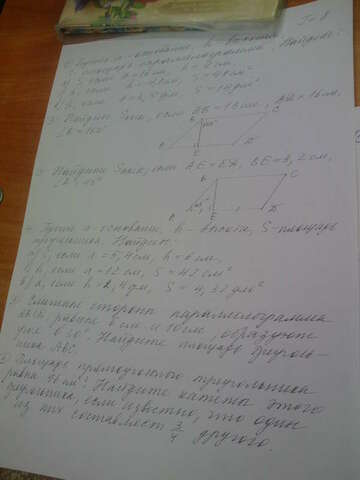 Гл 8
1) Пусть a - основание, h - высота,
S - площадь параллелограмма. Найдите:
а) S, если a = 15 см, h = 6 см,
h = 20 см, S = 40 см²
S = 10 дм²
Найдите Sпар, если AB = 18 см, AD = 16 см,
∠B = 150°
B C
A E D
Найдите Sпар, если AE = ED, BE = 3,2 см,
∠A = 45°
B C
A E D
Пусть a - основание, h - высота, S - площадь
треугольника. Найдите:
а) S, если a = 5,4 см, h = 6 см,
б) h, если a = 12 см, S = 42 см²
в) a, если h = 2,4 дм, S = 4,32 дм²
Смежные стороны параллелограмма
равны 6 см и 10 см, образуют
угол 60°. Найдите площадь треуголь-
ника ABC.
Площадь прямоугольного треугольника
равна 96 см². Найдите катеты этого
треугольника, если известно, что один
из них составляет 3/4 другого.